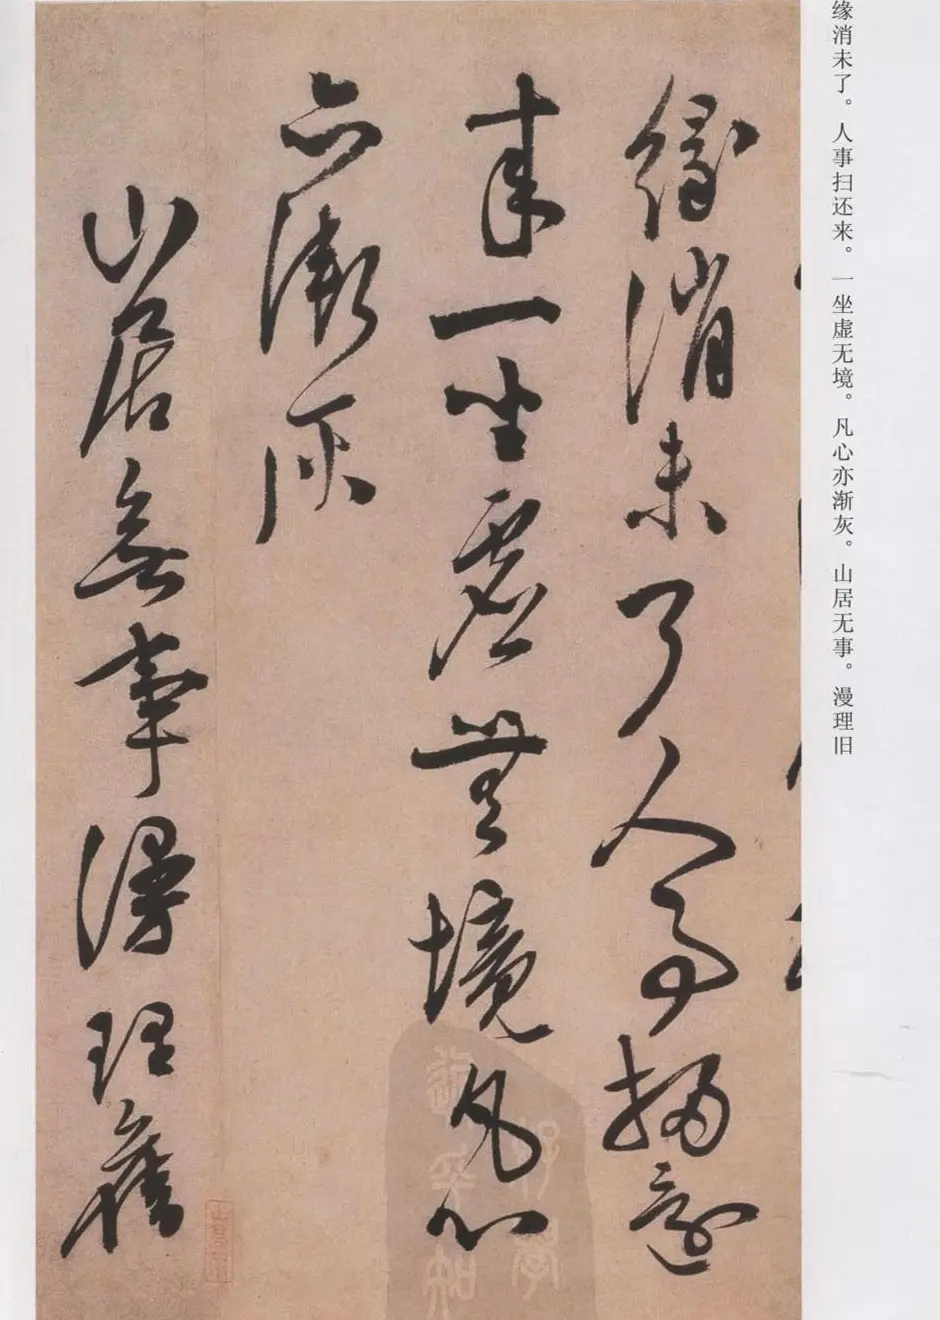 缘消未了。人事扫还来。一坐虚无境。凡心亦渐灰。山居无事。漫理旧
緣消未了人事掃還
来一坐虚無境凡心
亦漸灰
山居無事漫理舊